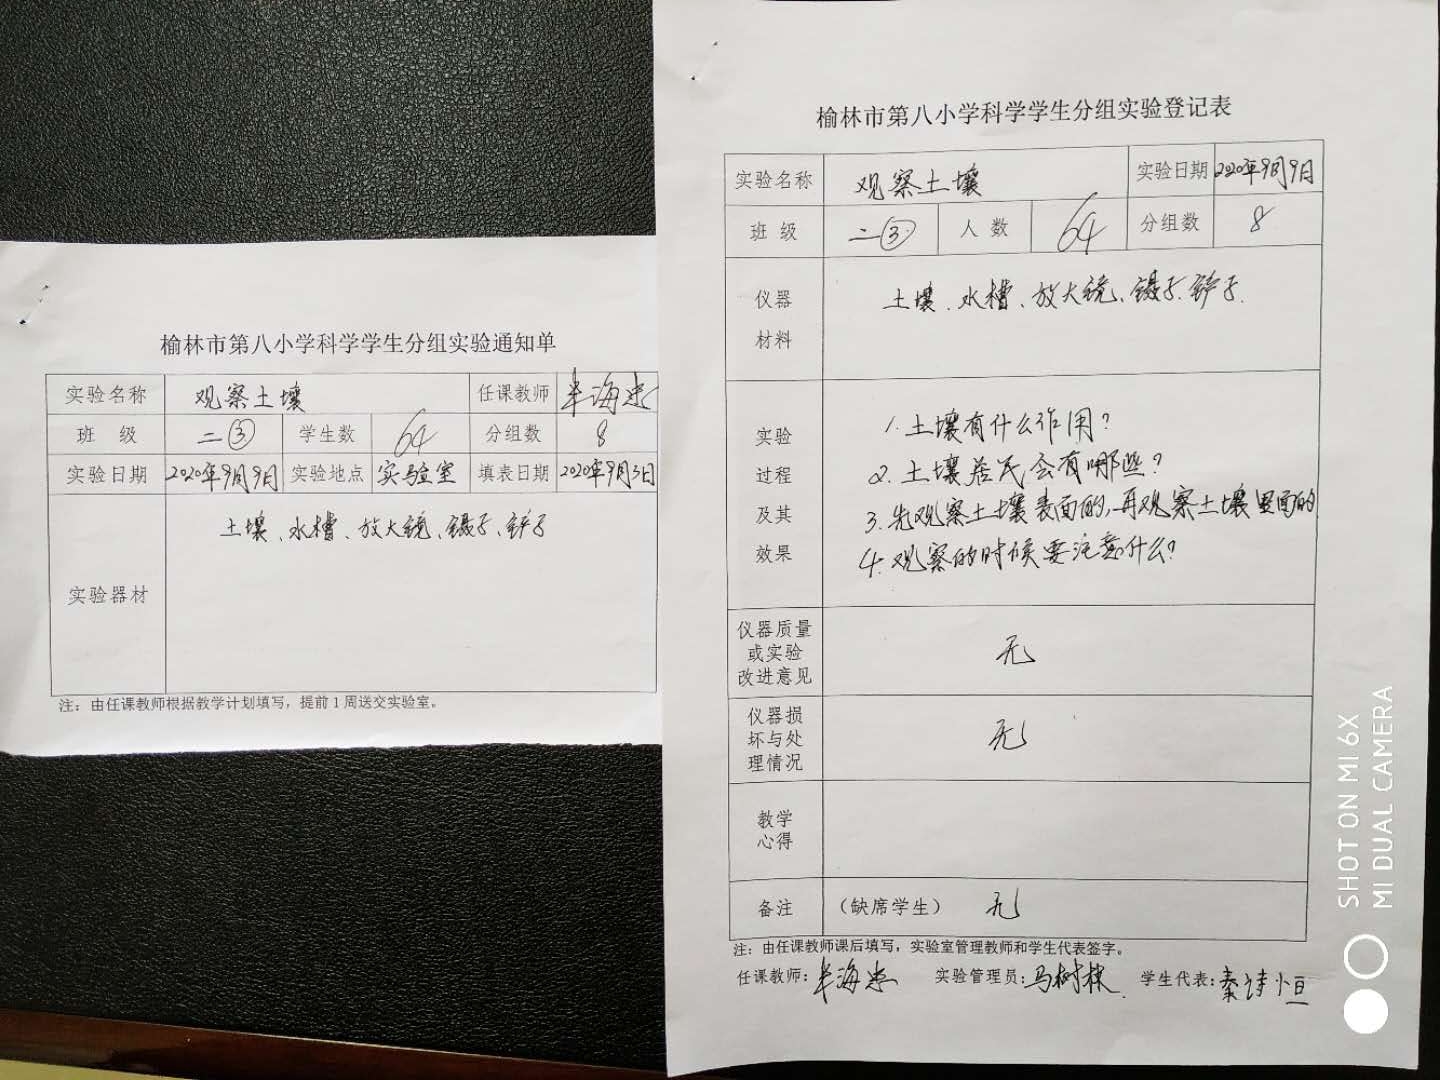 榆林市第八小学科学学生分组实验通知单
实验名称 观察土壤 任课教师 海忠
班 级 二③ 学生数 64 分组数 8
实验日期 2020年9月9日 实验地点 实验室 填表日期 2020年9月3日
实验器材 土壤、水槽、放大镜、镊子、铲子
注：由任课教师根据教学计划填写，提前1周送交实验室。
榆林市第八小学科学学生分组实验登记表
实验名称 观察土壤 实验日期 2020年9月9日
班 级 二③ 人 数 64 分组数 8
仪器
材料
土壤、水槽、放大镜、镊子、铲子.
实验
过程
及其
效果
1.土壤有什么作用？
2.土壤居民会有哪些？
3.先观察土壤表面的,再观察土壤里面的
4.观察的时候要注意什么？
仪器质量
或实验
改进意见
无
仪器损
坏与处
理情况
无
教学
心得
备注 （缺席学生） 无
注：由任课教师课后填写，实验室管理教师和学生代表签字。
任课教师：海忠 实验管理员：马树栋 学生代表：秦诗恒
SHOT ON MI 6X
MI DUAL CAMERA